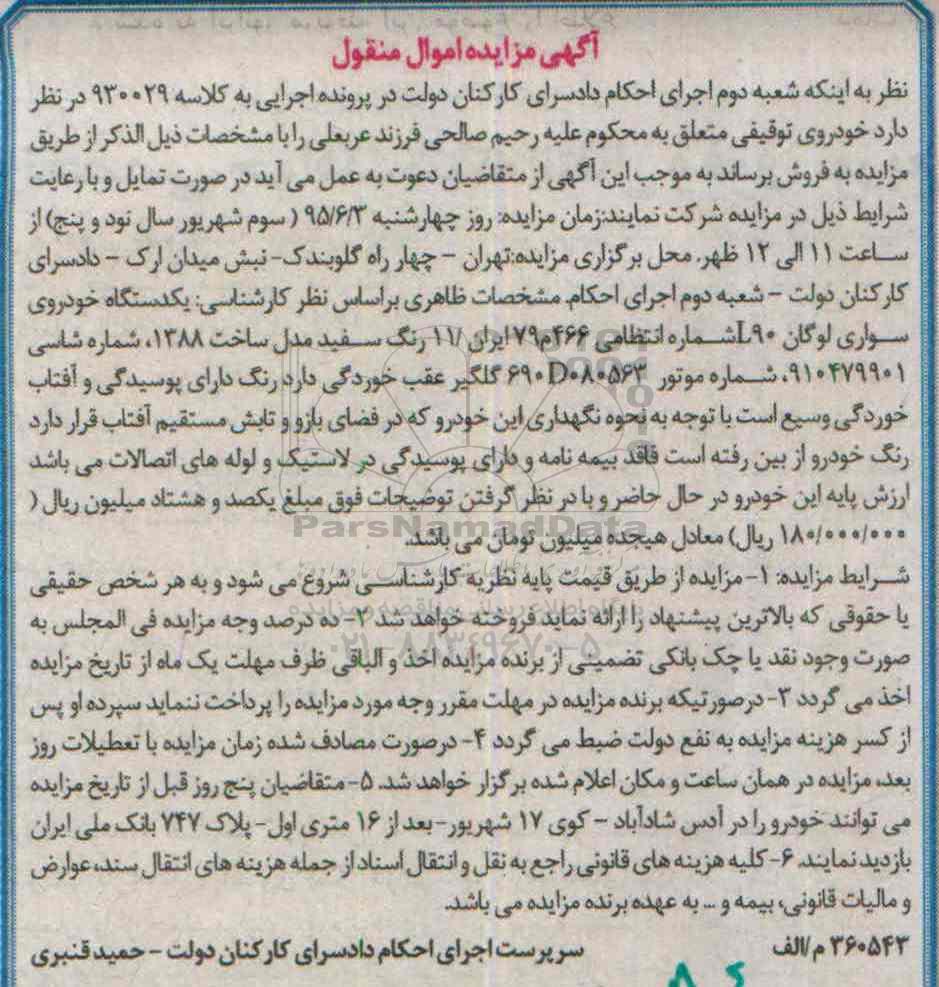 آگهی مزایده اموال منقول
نظر به اینکه شعبه دوم اجرای احکام دادسرای کارکنان دولت در پرونده اجرایی به کلاسه ۹۳۰۰۲۹ در نظر
دارد خودروی توقیفی متعلق به محکوم علیه رحیم صالحی فرزند عربعلی را با مشخصات ذیل الذکر از طریق
مزایده به فروش برساند به موجب این آگهی از متقاضیان دعوت به عمل می آید در صورت تمایل و با رعایت
شرایط ذیل در مزایده شرکت نمایند:زمان مزایده: روز چهارشنبه ۹۵/۶/۳ ( سوم شهریور سال نود و پنج) از
ساعت ۱۱ الی ۱۲ ظهر. محل برگزاری مزایده:تهران – چهار راه گلوبندک- نبش میدان ارک – دادسرای
کارکنان دولت – شعبه دوم اجرای احکام. مشخصات ظاهری براساس نظر کارشناسی: یکدستگاه خودروی
سواری لوگان L۹۰شماره انتظامی ۴۶۶م۷۹ ایران /۱۱ رنگ سفید مدل ساخت ۱۳۸۸، شماره شاسی
۹۱۰۴۷۹۹۰۱، شماره موتور ۶۹۰D۰۸۰۵۶۳ گلگیر عقب خوردگی دارد رنگ دارای پوسیدگی و آفتاب
خوردگی وسیع است با توجه به نحوه نگهداری این خودرو که در فضای بازو و تابش مستقیم آفتاب قرار دارد
رنگ خودرو از بین رفته است فاقد بیمه نامه و دارای پوسیدگی در لاستیک و لوله های اتصالات می باشد
ارزش پایه این خودرو در حال حاضر و با در نظر گرفتن توضیحات فوق مبلغ یکصد و هشتاد میلیون ریال (
۱۸۰/۰۰۰/۰۰۰ ریال) معادل هیجده میلیون تومان می باشد.
شرایط مزایده: ۱- مزایده از طریق قیمت پایه نظریه کارشناسی شروع می شود و به هر شخص حقیقی
یا حقوقی که بالاترین پیشنهاد را ارائه نماید فروخته خواهد شد ۲- ده درصد وجه مزایده فی المجلس به
صورت وجود نقد یا چک بانکی تضمینی از برنده مزایده اخذ و الباقی ظرف مهلت یک ماه از تاریخ مزایده
اخذ می گردد ۳- درصورتیکه برنده مزایده در مهلت مقرر وجه مورد مزایده را پرداخت ننماید سپرده او پس
از کسر هزینه مزایده به نفع دولت ضبط می گردد ۴- درصورت مصادف شده زمان مزایده با تعطیلات روز
بعد، مزایده در همان ساعت و مکان اعلام شده برگزار خواهد شد. ۵- متقاضیان پنج روز قبل از تاریخ مزایده
می توانند خودرو را در آدس شادآباد – کوی ۱۷ شهریور- بعد از ۱۶ متری اول- پلاک ۷۴۷ بانک ملی ایران
بازدید نمایند. ۶- کلیه هزینه های قانونی راجع به نقل و انتقال اسناد از جمله هزینه های انتقال سند، عوارض
و مالیات قانونی، بیمه و ... به عهده برنده مزایده می باشد.
۳۶۰۵۴۳ م/الف سرپرست اجرای احکام دادسرای کارکنان دولت - حمید قنبری
ParsNamadData
۰۲۱-۸۸۳۴۹۶۷۰-۵